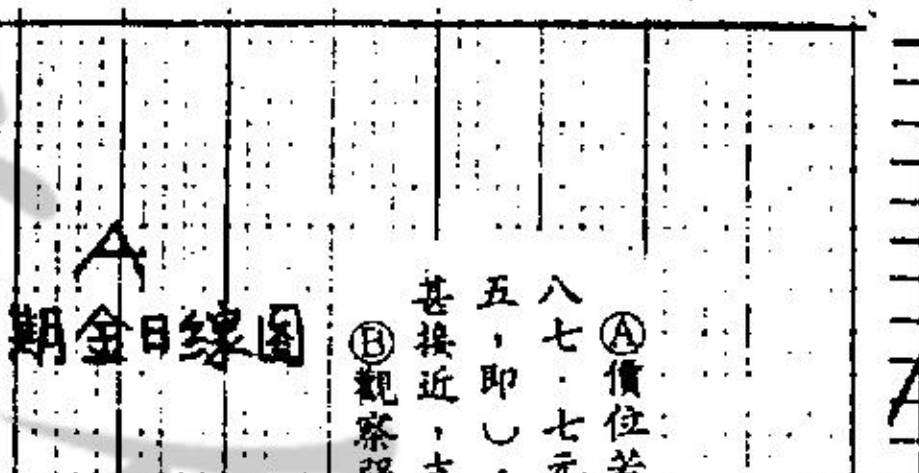 A
期金日線圖
Ⓐ價位若
八七．七元
五，即）．
甚接近，支
Ⓑ觀察強